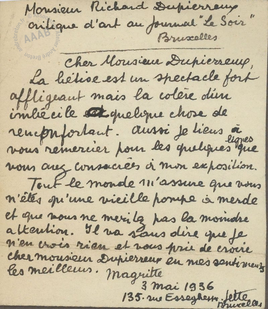 Monsieur Richard Dupierreux
critique d'art au journal "Le Soir"
Bruxelles
Cher Monsieur Dupierreux,
La bêtise est un spectacle fort
affligeant mais la colère d'un
imbécile a quelque chose de
remconfortant. Aussi je tiens à
vous remercier pour les quelques lignes que
vous avez consacrées à mon exposition.
Tout le monde m'assure que vous
n'êtes qu'une vieille pompe à merde
et que vous ne méritez pas la moindre
attention. Il va sans dire que je
n'en crois rien et vous prie de croire
cher monsieur Dupierreux en mes sentiments
les meilleurs. Magritte
3 mai 1936
135 rue Esseghem. Jette
Bruxelles
AAAB